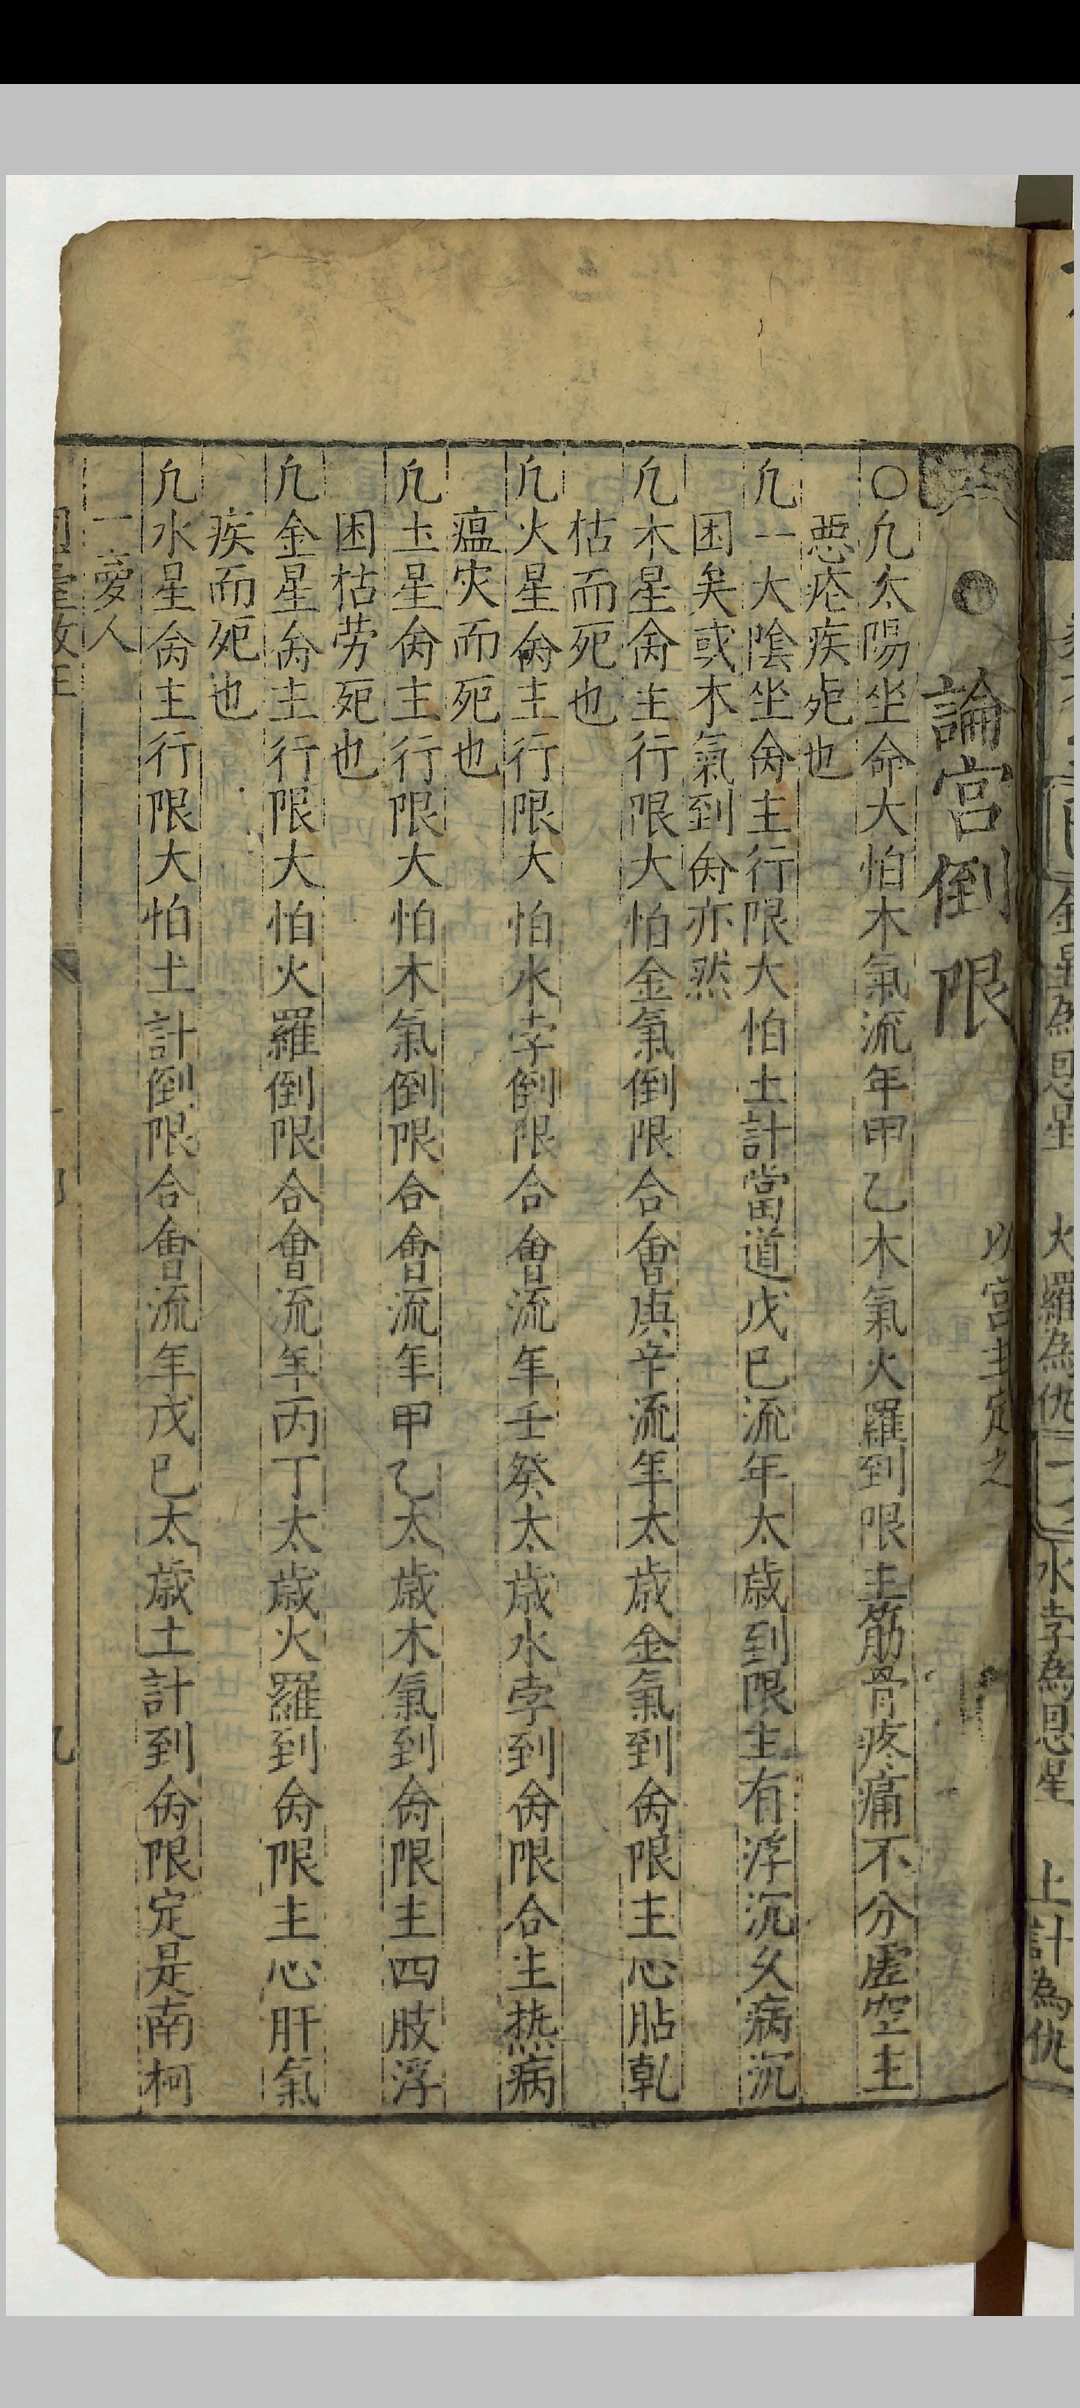 論宮倒限
以宮主定之
○凢太陽坐命大怕木氣流年甲乙木氣火羅到限主筋骨疼痛不分虛空主
惡疮疾死也
凢一大陰坐命主行限大怕土計當道戊巳流年太歳到限主有浮沉久病沉
困矣或木氣到命亦然
凢木星命主行限大怕金氣倒限合會庚辛流年太歳金氣到命限主心胋乹
枯而死也
凢火星命主行限大怕水孛倒限合會流年壬癸太歳水孛到命限合主热病
瘟灾而死也
凢土星命主行限大怕木氣倒限合會流年甲乙太歳木氣到命限主四肢浮
困枯劳死也
凢金星命主行限大怕火羅倒限合會流年丙丁太歳火羅到命限主心肝氣
疾而死也
凢水星命主行限大怕土計倒限合會流年戊巳太歳土計到命限定是南柯
一夢人